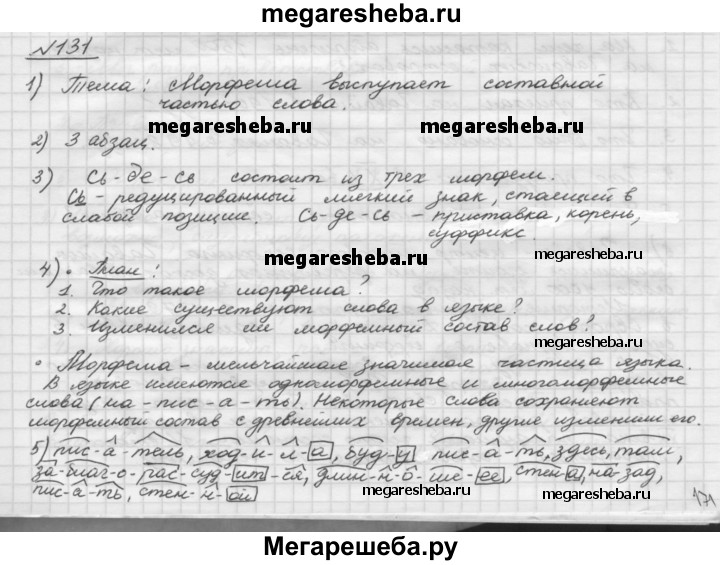 megaresheba.ru
№131
1) Тема: Морфема выступает составной
частью слова.
megaresheba.ru megaresheba.ru
2) 3 абзац.
3) Сь-де-сь состоит из трех морфем.
Сь - редуцированный мягкий знак, стоящий в
слабой позиции. Сь-де-сь - приставка, корень,
суффикс.
megaresheba.ru megaresheba.ru
4) • План:
1. Что такое морфема?
2. Какие существуют слова в языке?
3. Изменился ли морфемный состав слов?
megaresheba.ru
• Морфема - мельчайшая значимая частица языка.
В языке имеются одноморфемные и многоморфемные
слова (на-пис-а-ть). Некоторые слова сохраняют
морфемный состав с древнейших времен, другие изменили его.
5) пис-а-тель, ход-и-л-а, буд-у пис-а-ть, здесь, там,
за-благ-о-рас-суд-ит-ся, длин-н-о-ше-ее, стен-а, на-зад,
пис-а-ть, стен-н-ой
megaresheba.ru megaresheba.ru
171
Мегарешеба.ру